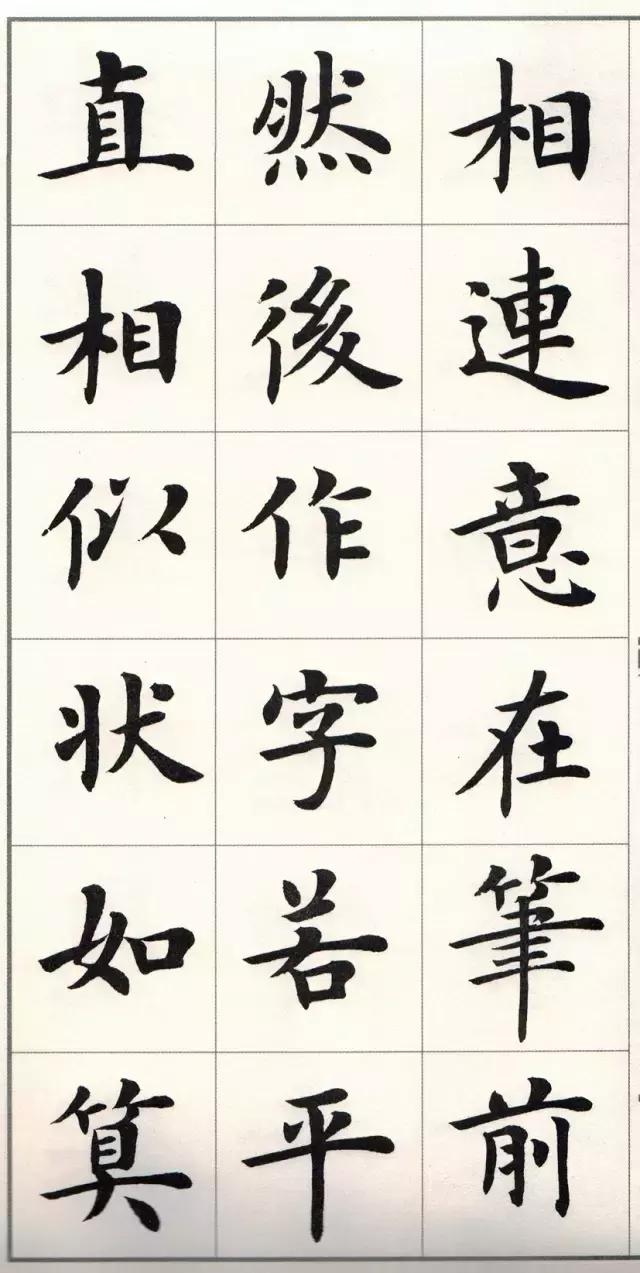 相連意在筆前
然後作字若平
直相似状如筭